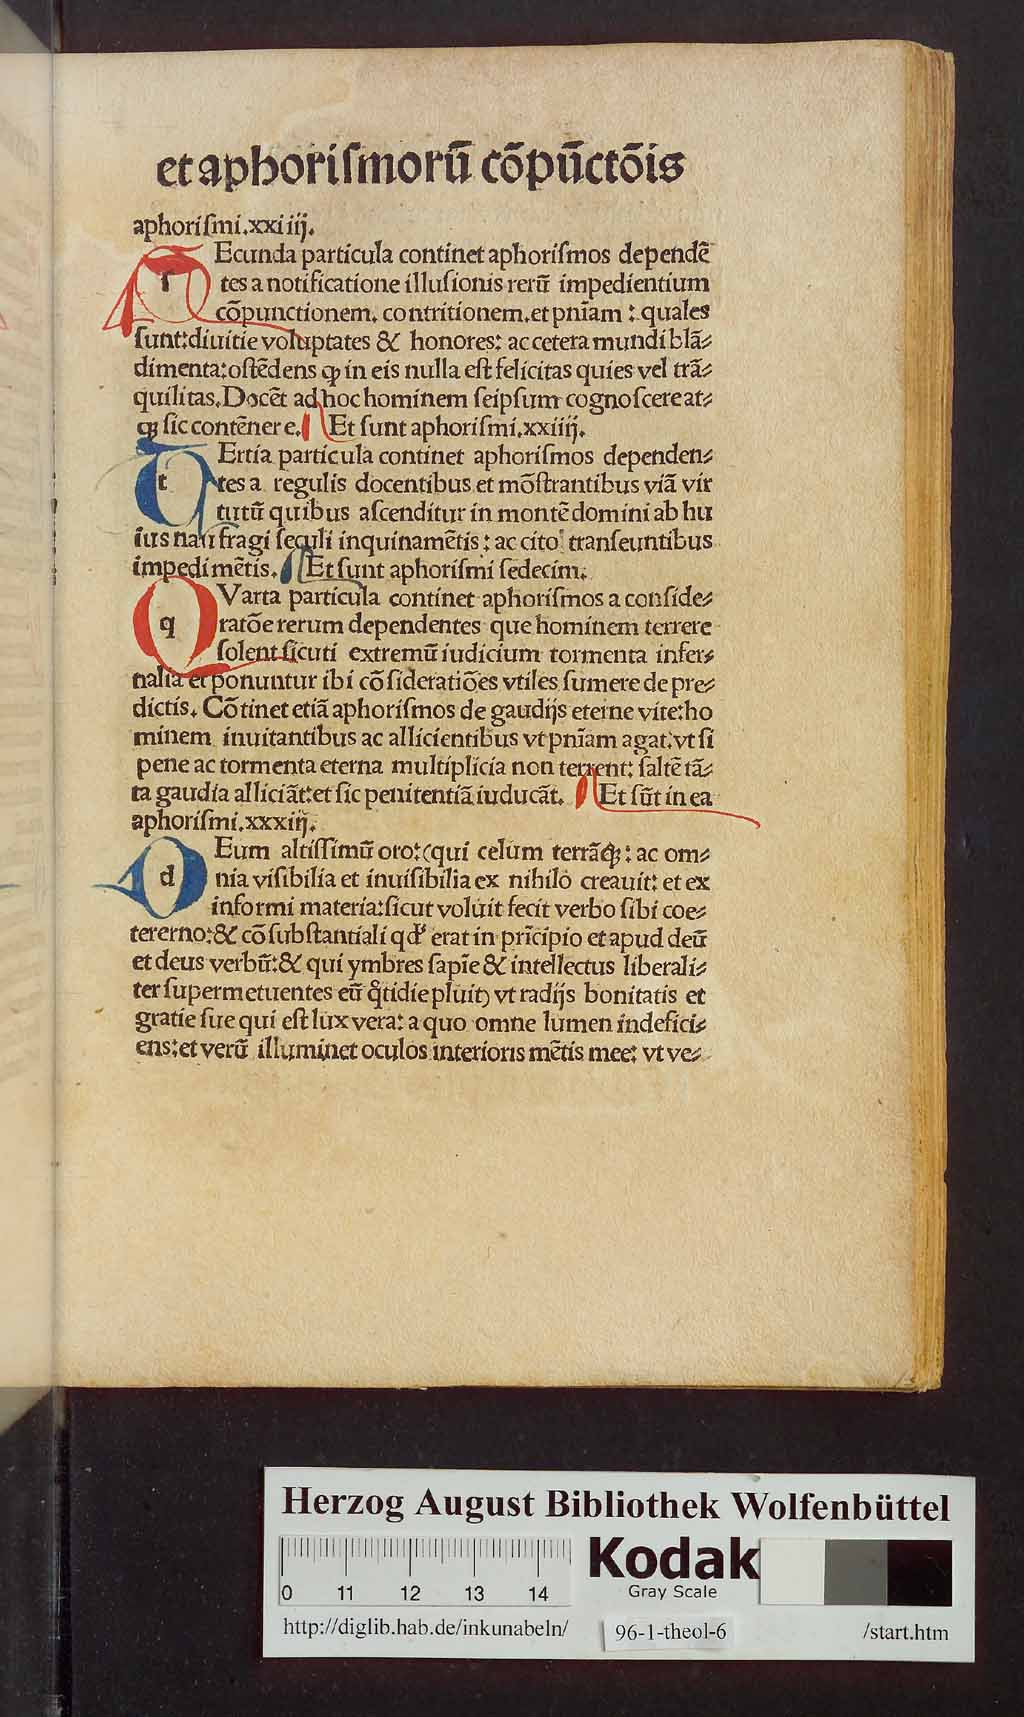 et aphoriſmorū cōpūctōis
aphoriſmi.xxiiij.
sEcunda particula continet aphoriſmos dependē
tes a notificatione illuſionis rerū impedientium
cōpunctionem. contritionem.et pn̄iam : quales
ſunt:diuitie voluptates & honores: ac cetera mundi blā⸗
dimenta:oſtēdens ꝙ in eis nulla eſt felicitas quies vel trā⸗
quilitas.Docēt ad hoc hominem ſeipſum cognoſcere at⸗
ꝙ ſic contēnere. Et ſunt aphoriſmi.xxiiij.
tErtia particula continet aphoriſmos dependen⸗
tes a regulis docentibus et mōſtrantibus viā vir
tutū quibus aſcenditur in montē domini ab hu
ius naufragi ſeculi inquinamētis : ac cito tranſeuntibus
impedimētis. Et ſunt aphoriſmi ſedecim.
qVarta particula continet aphoriſmos a conſide⸗
ratōe rerum dependentes que hominem terrere
ſolent ſicuti extremū iudicium tormenta infer⸗
nalia et ponuntur ibi cōſideratiōes vtiles ſumere de pre⸗
dictis. Cōtinet etiā aphoriſmos de gaudijs eterne vite:ho
minem inuitantibus ac allicientibus vt pn̄iam agat:vt ſi
pene ac tormenta eterna multiplicia non terrent: ſaltē tā⸗
ta gaudia alliciāt:et ſic penitentiā iuducāt. Et ſūt in ea
aphoriſmi.xxxiij.
dEum altiſſimū oro:(qui celum terrāꝙ: ac om⸗
nia viſibilia et inuiſibilia ex nihilo creauit: et ex
informi materia:ſicut voluit fecit verbo ſibi coe⸗
tererno:& cōſubſtantiali qd' erat in prīcipio et apud deū
et deus verbū:& qui ymbres ſapīe & intellectus liberali⸗
ter ſuper metuentes eū q̊tidie pluit) vt radijs bonitatis et
gratie ſue qui eſt lux vera: a quo omne lumen indefici⸗
ens:et verū illuminet oculos interioris mētis mee: vt ve⸗
Herzog August Bibliothek Wolfenbüttel
Kodak
Gray Scale
0 11 12 13 14
http://diglib.hab.de/inkunabeln/ 96-1-theol-6 /start.htm